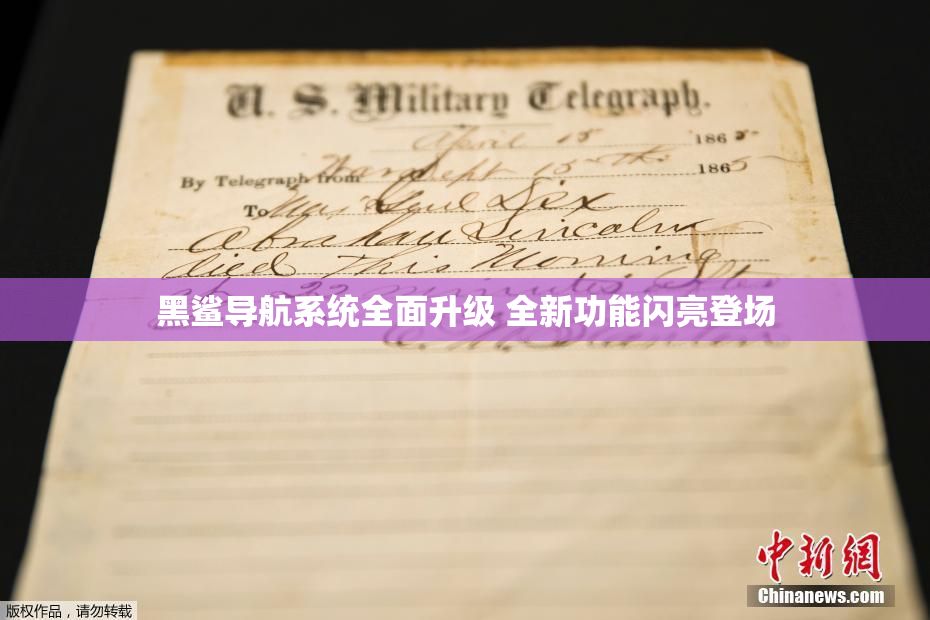 U. S. Military Telegraph.
April 15 1865
By Telegraph from War Dept 15th 1865
To Maj Genl Dix
Abraham Lincoln
died This Morning
at 22 minutes after
黑鲨导航系统全面升级 全新功能闪亮登场
E. M. Stanton
中新网
Chinanews.com
版权作品，请勿转载